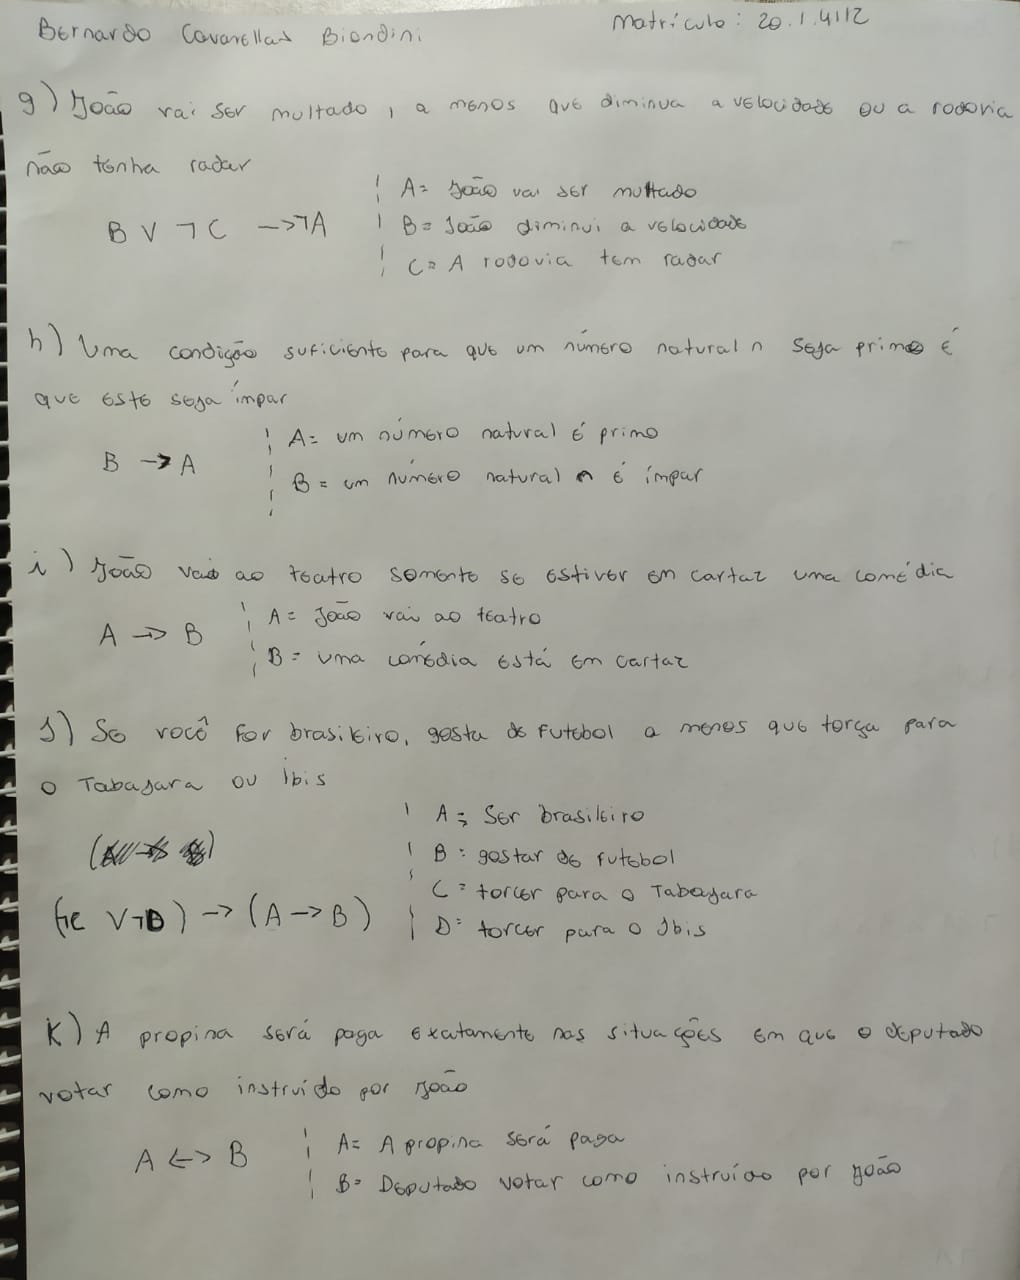 Bernardo Cavarellas Biondini Matrícula: 20.1.4112
g) João vai ser multado, a menos que diminua a velocidade ou a rodovia
não tenha radar
A = João vai ser multado
B ∨ ¬C → ¬A B = João diminui a velocidade
C = A rodovia tem radar
h) Uma condição suficiente para que um número natural n seja primo é
que este seja ímpar
A = um número natural é primo
B → A
B = um número natural n é ímpar
i) João vai ao teatro somente se estiver em cartaz uma comédia
A = João vai ao teatro
A → B
B = uma comédia está em cartaz
J) Se você for brasileiro, gosta de futebol a menos que torça para
o Tabajara ou Íbis
A = Ser brasileiro
B = gostar de futebol
C = torcer para o Tabajara
(¬C ∨ ¬D) → (A → B) D = torcer para o Ibis
K) A propina será paga exatamente nas situações em que o deputado
votar como instruído por João
A = A propina será paga
A ↔ B
B = Deputado votar como instruído por João